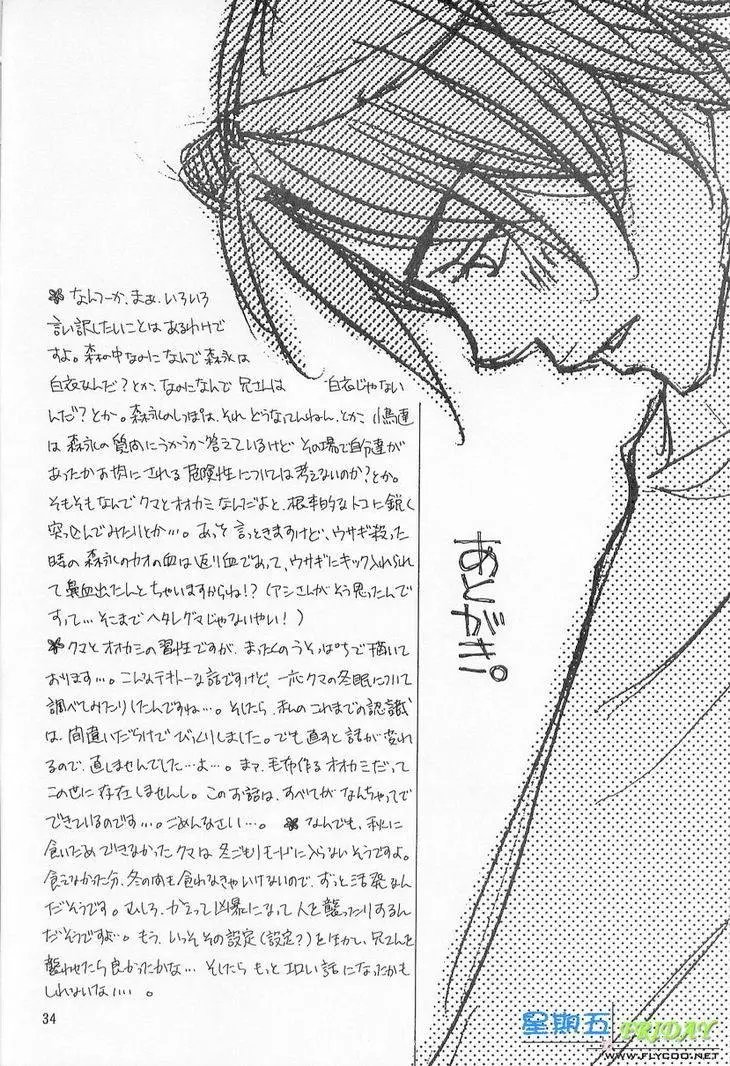 ✽ なんつーか、まぁ、いろいろ
言い訳したいことは あるわけで
すよ。森の中なのに なんで 森永は
白衣なんだ?とか、なのになんで 兄さんは 白衣じゃない
んだ?とか。森永のしっぽは、それ どうなってんねん、とか 小鳥達
は 森永の 質問にうかうか答えているけど その場で自分達が
あったかお肉にされる 危険性については考えないのか?とか。
そもそもなんで クマとオオカミ なんだよと、根本的なトコに鋭く
突っ込んでみたりとか…。あっと 言っときますけど、ウサギ 殺った
時の 森永のカオの血は返り血であって、ウサギにキック入れられ
て 鼻血出たんと ちゃいますからね!?(アシさんが そう思ったんで
すって… そこまで ヘタレグマじゃないやい!)
✽ クマと オオカミの 習性ですが、まったくの うそっぱちで 描いて
おります…。こんなテキトーな話ですけど、一応 クマの冬眠について
調べてみたりしたんですね…。そしたら、私の これまでの認識
は、間違いだらけで びっくりしました。でも直すと 話が 変わ
るので、直しませんでした…よ…。まァ、毛布作る オオカミだって
この世に 存在しませんし。このお話は、すべてが なんちゃってで
できているのです…。ごめんなさい…。 ✽ なんでも、秋に
食いだめ できなかった クマは 冬ごもりモードに入らないそうですよ。
食えなかった分、冬の間も 食わなきゃいけないので、ずっと 活発なん
だそうです。むしろ、かえって凶暴になって 人を 襲ったりするん
だそうですよ。もう、いっそ その設定(設定?)を 活かし、兄さんを
襲わせたら 良かったかな… そしたら もっと エロい話に なったかも
しれないな…。
あとがき。
34
星期五 FRIDAY
WWW.FLYCOO.NET